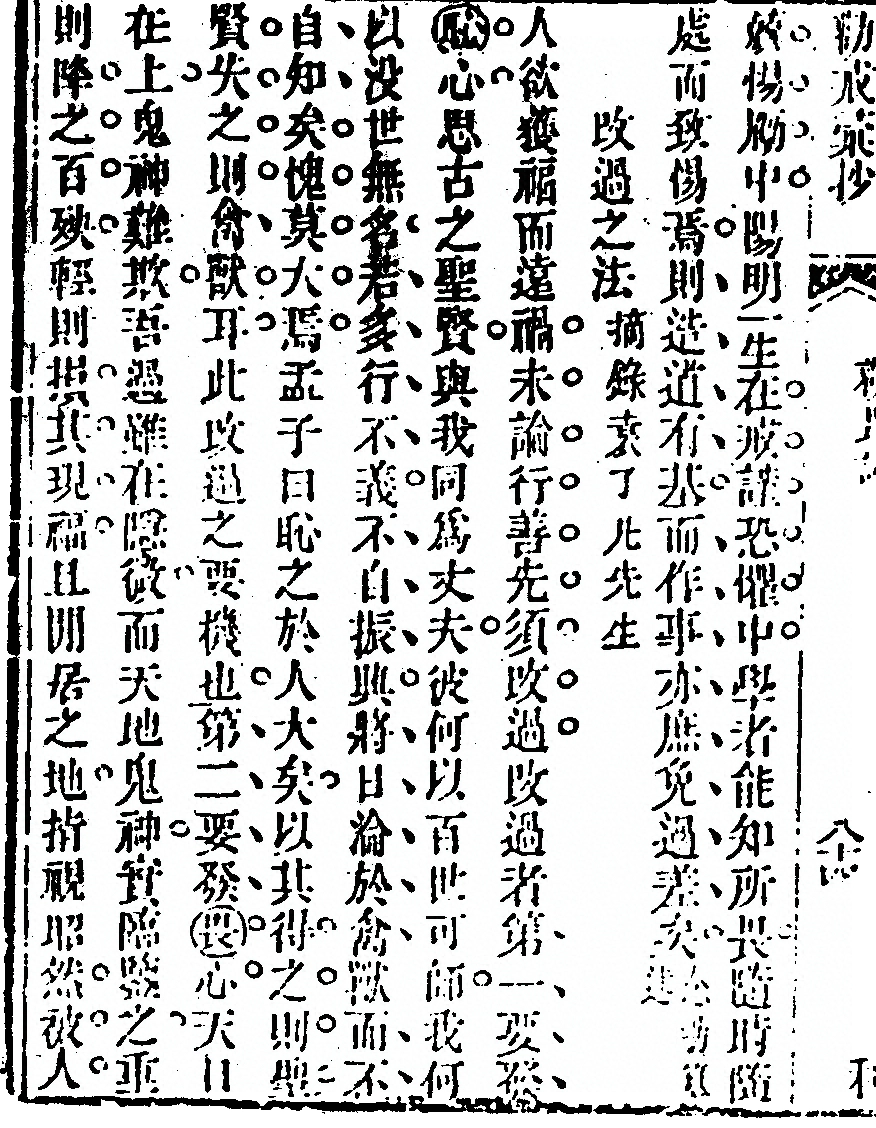 勸戒彙抄
八十四
兢惕勵中陽明一生在戒謹恐懼中學者能知所畏隨時隨
處而致惕焉則造道有基而作事亦庶免過差矣
改過之法 摘錄袁了凡先生
人欲獲福而遠禍未論行善先須改過改過者第一要發
恥心思古之聖賢與我同為丈夫彼何以百世可師我何
以沒世無名若多行不義不自振興將日淪於禽獸而不
自知矣愧莫大焉孟子曰恥之於人大矣以其得之則聖
賢失之則禽獸耳此改過之要機也第二要發畏心天日
在上鬼神難欺吾過雖在隱微而天地鬼神實臨鑒之重
則降之百殃輕則損其現福且閒居之地指視昭然彼人